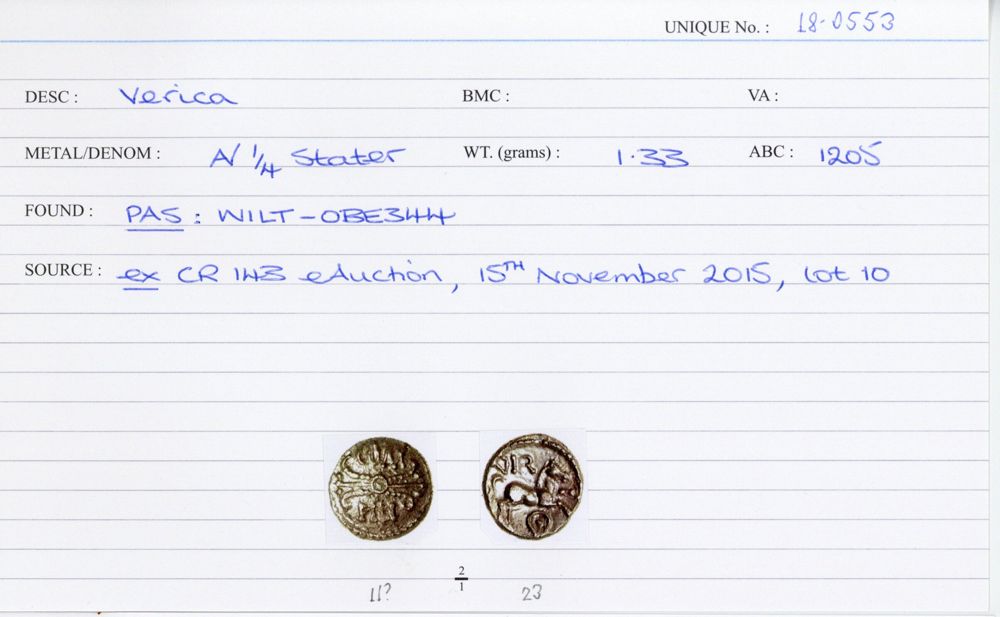 UNIQUE No. : 18-0553
DESC : Verica BMC : VA :
METAL/DENOM : A/ 1/4 Stater WT. (grams) : 1.33 ABC : 1205
FOUND : PAS : WILT-0BE344
SOURCE : ex CR 143 eAuction, 15TH November 2015, lot 10
VIR
2/1
11? 23